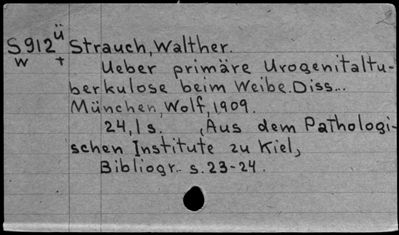 S912ü Strauch, Walther.
w + Ueber primäre Urogenitaltu-
berkulose beim Weibe. Diss...
München, Wolf, 1909.
24,1 s. (Aus dem Pathologi-
schen Institute zu Kiel,
Bibliogr. s. 23-24.